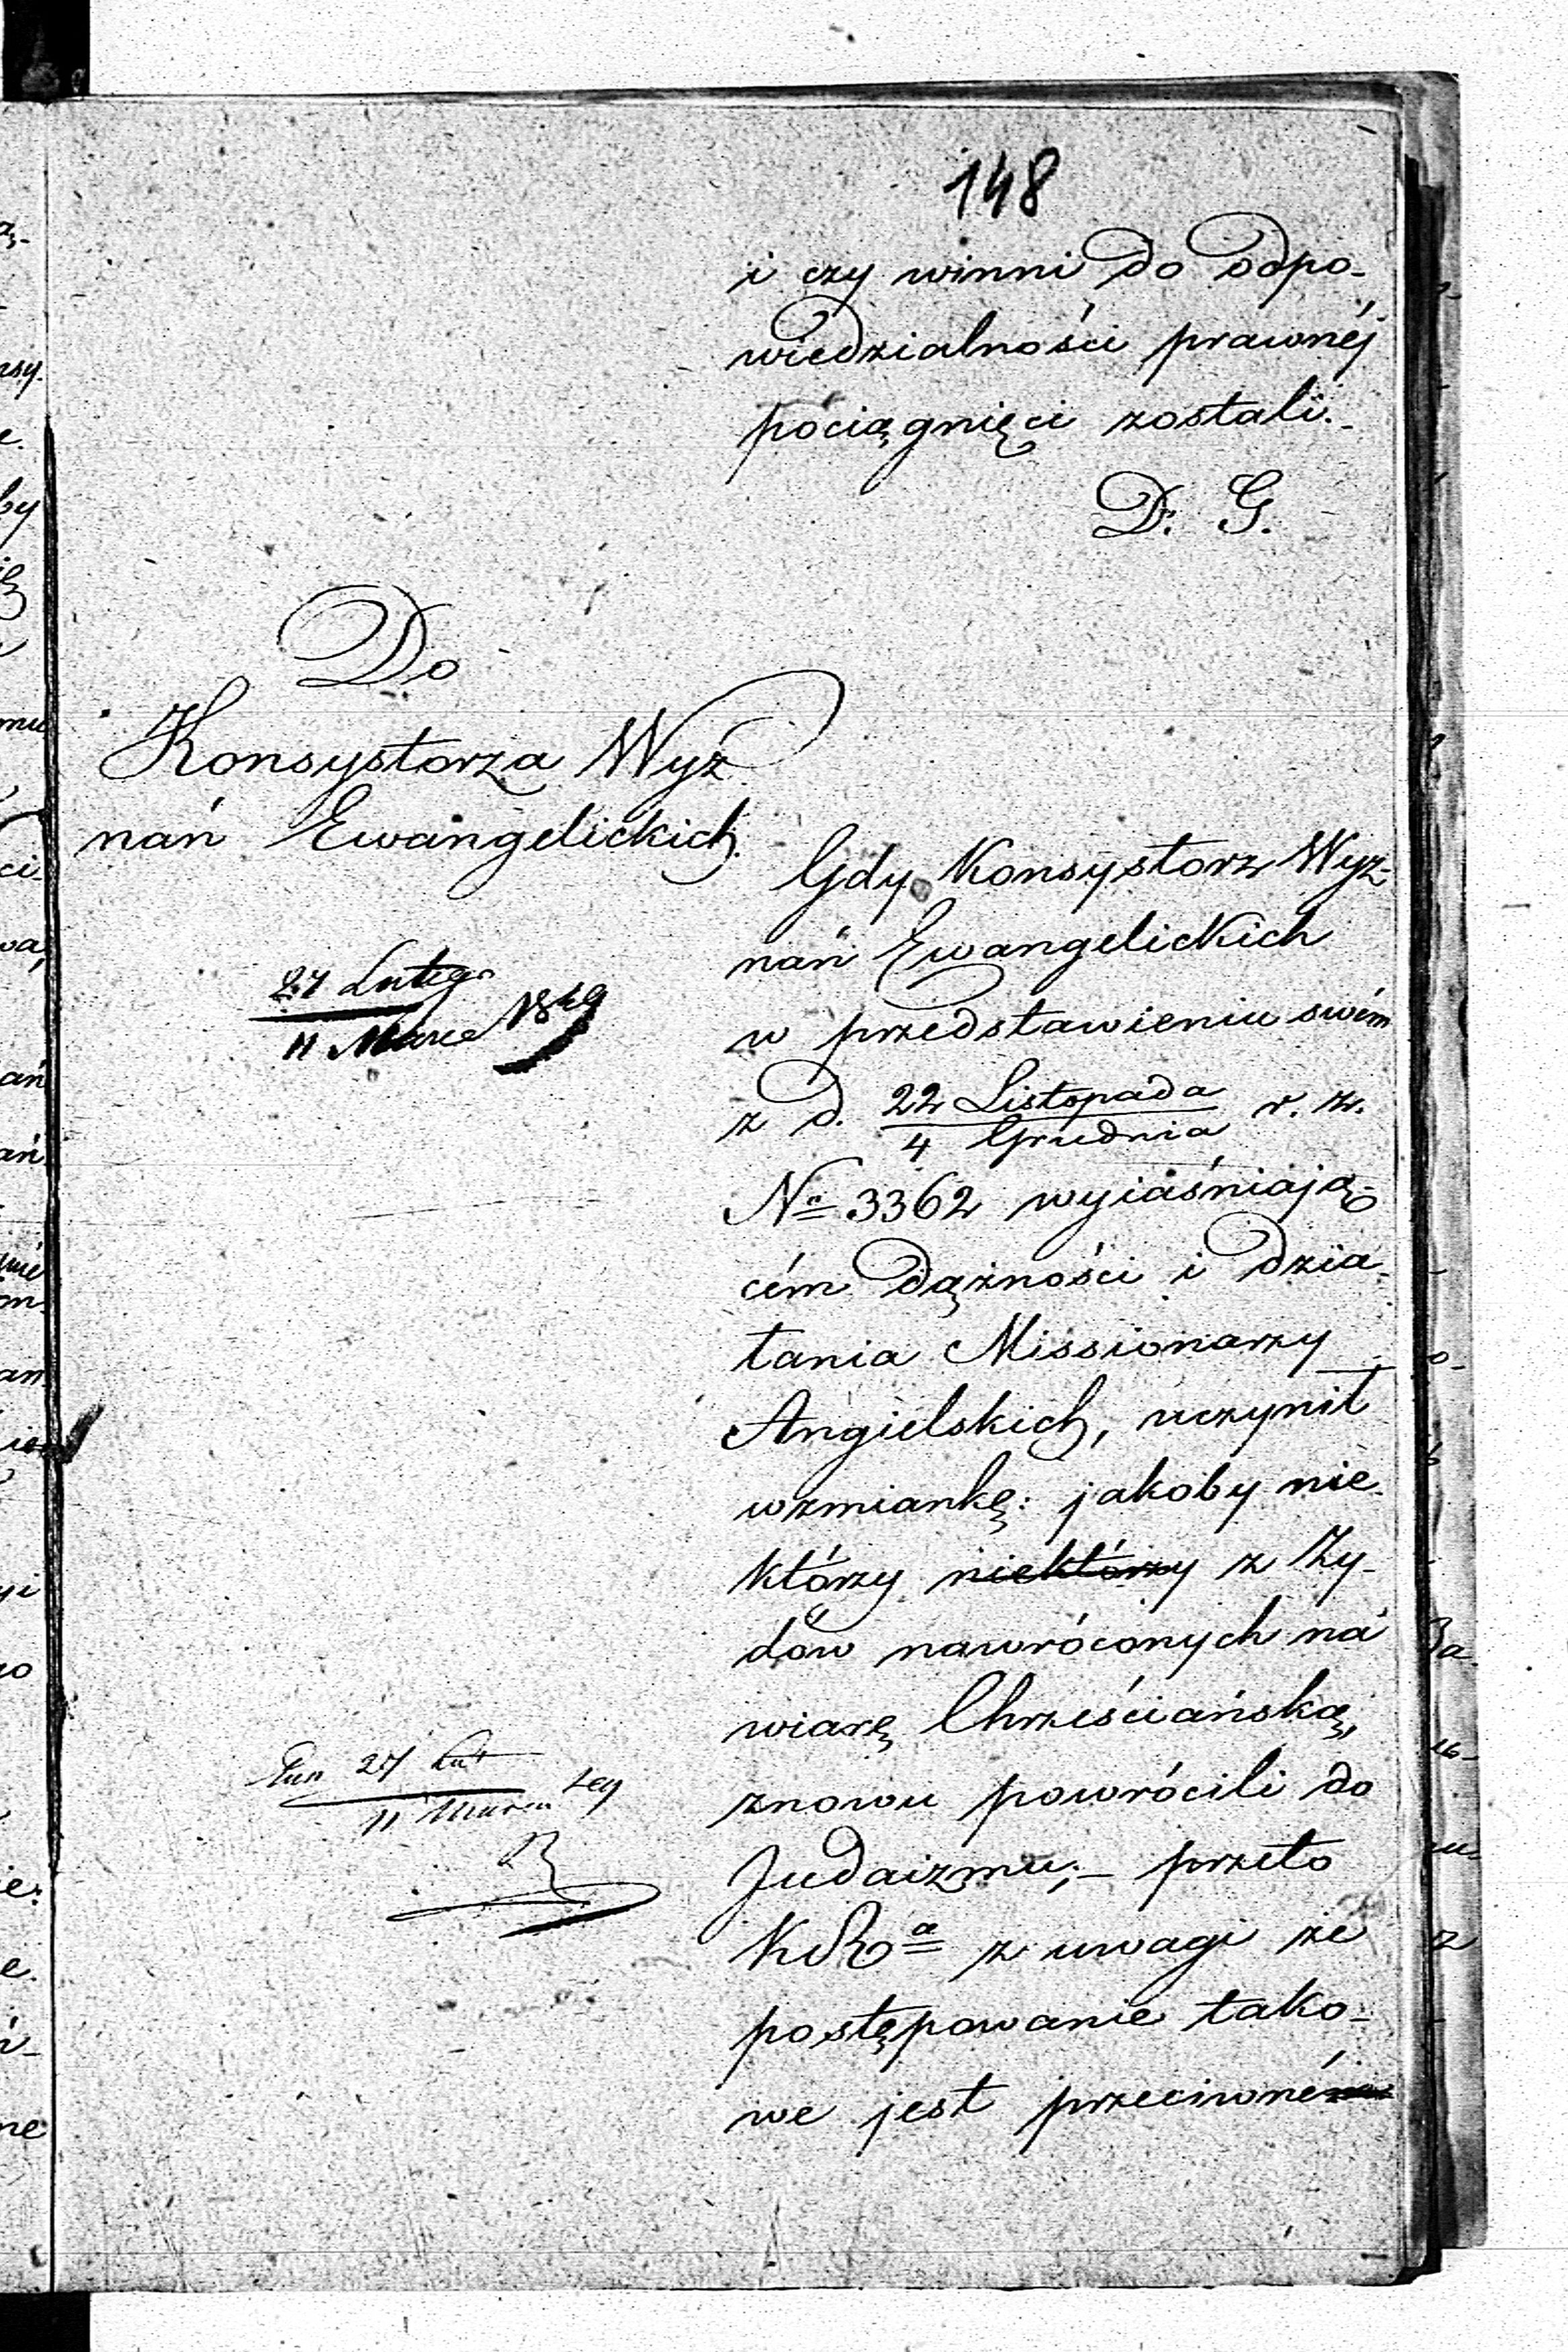 148
i czy winni do odpo-
wiedzialności prawnéj
pociągnięci zostali.-
D. G.
Do
Konsystorza Wyz
nań Ewangelickich.
27 Lutego
11 Marca 1849
Gdy Konsystorz Wyz-
nań Ewangelickich
w przedstawieniu swém
z d. 22 Listopada
4 Grudnia r. z.
No 3362 wyiaśniają-
cém dążności i dzia-
łania Missionarzy
Angielskich, uczynił
wzmiankę: jakoby nie
którzy niektórzy z Ży-
dów nawróconych na
wiarę Chrześciańską,
znowu powrócili do
Judaizmu;- przeto
KRa z uwagi że
postępowanie tako-
we jest przeciwné
27 Lut
11 Marca